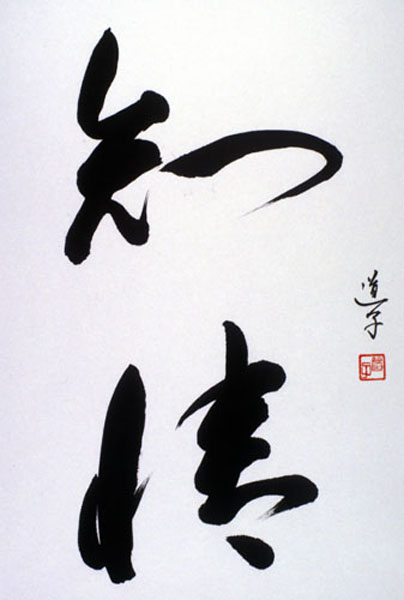 知情
道子